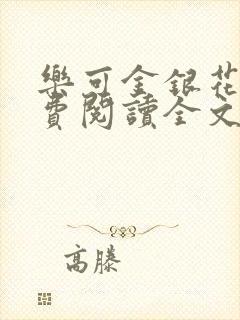 樂可金銀花
費閱讀全文
高滕